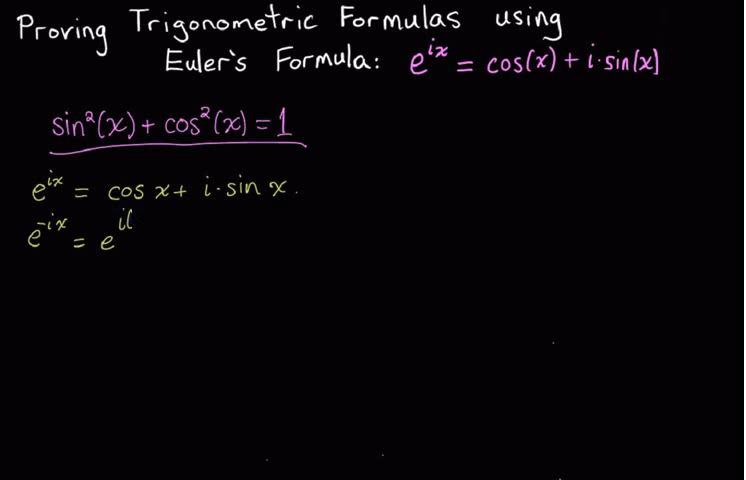 Proving Trigonometric Formulas using
Euler's Formula: e^{ix} = cos(x) + i·sin(x)
sin²(x) + cos²(x) = 1
e^{ix} = cos x + i·sin x.
e^{-ix} = e^{i(